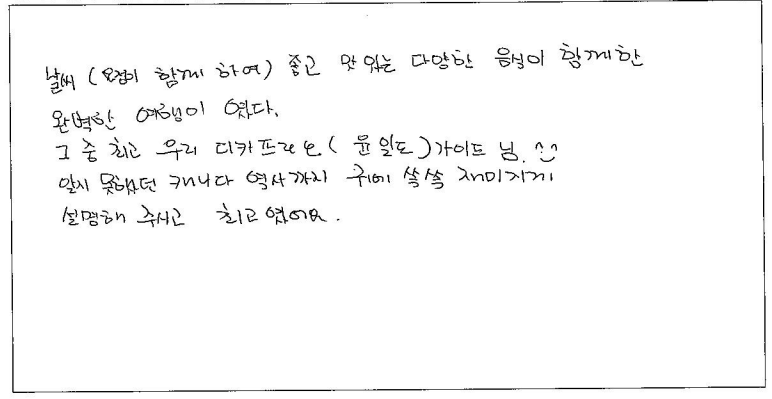 날씨 (요정이 함께 하여) 좋고 맛있는 다양한 음식이 함께한
완벽한 여행이 였다.
그 중 최고 우리 디카프리오 (윤일도) 가이드 님. ^^
알지 못했던 캐나다 역사까지 귀에 쏙쏙 재미지게
설명해 주시고 최고였어요.